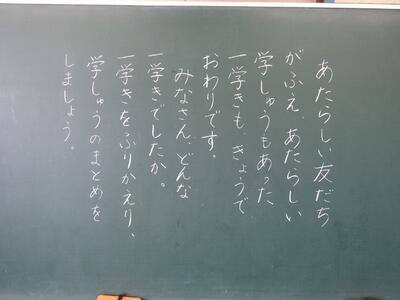 あたらしい友だち
がふえ、あたらしい
学しゅうもあった
一学きも、きょうで
おわりです。
みなさん、どんな
一学きでしたか。
一学きをふりかえり、
学しゅうのまとめを
しましょう。